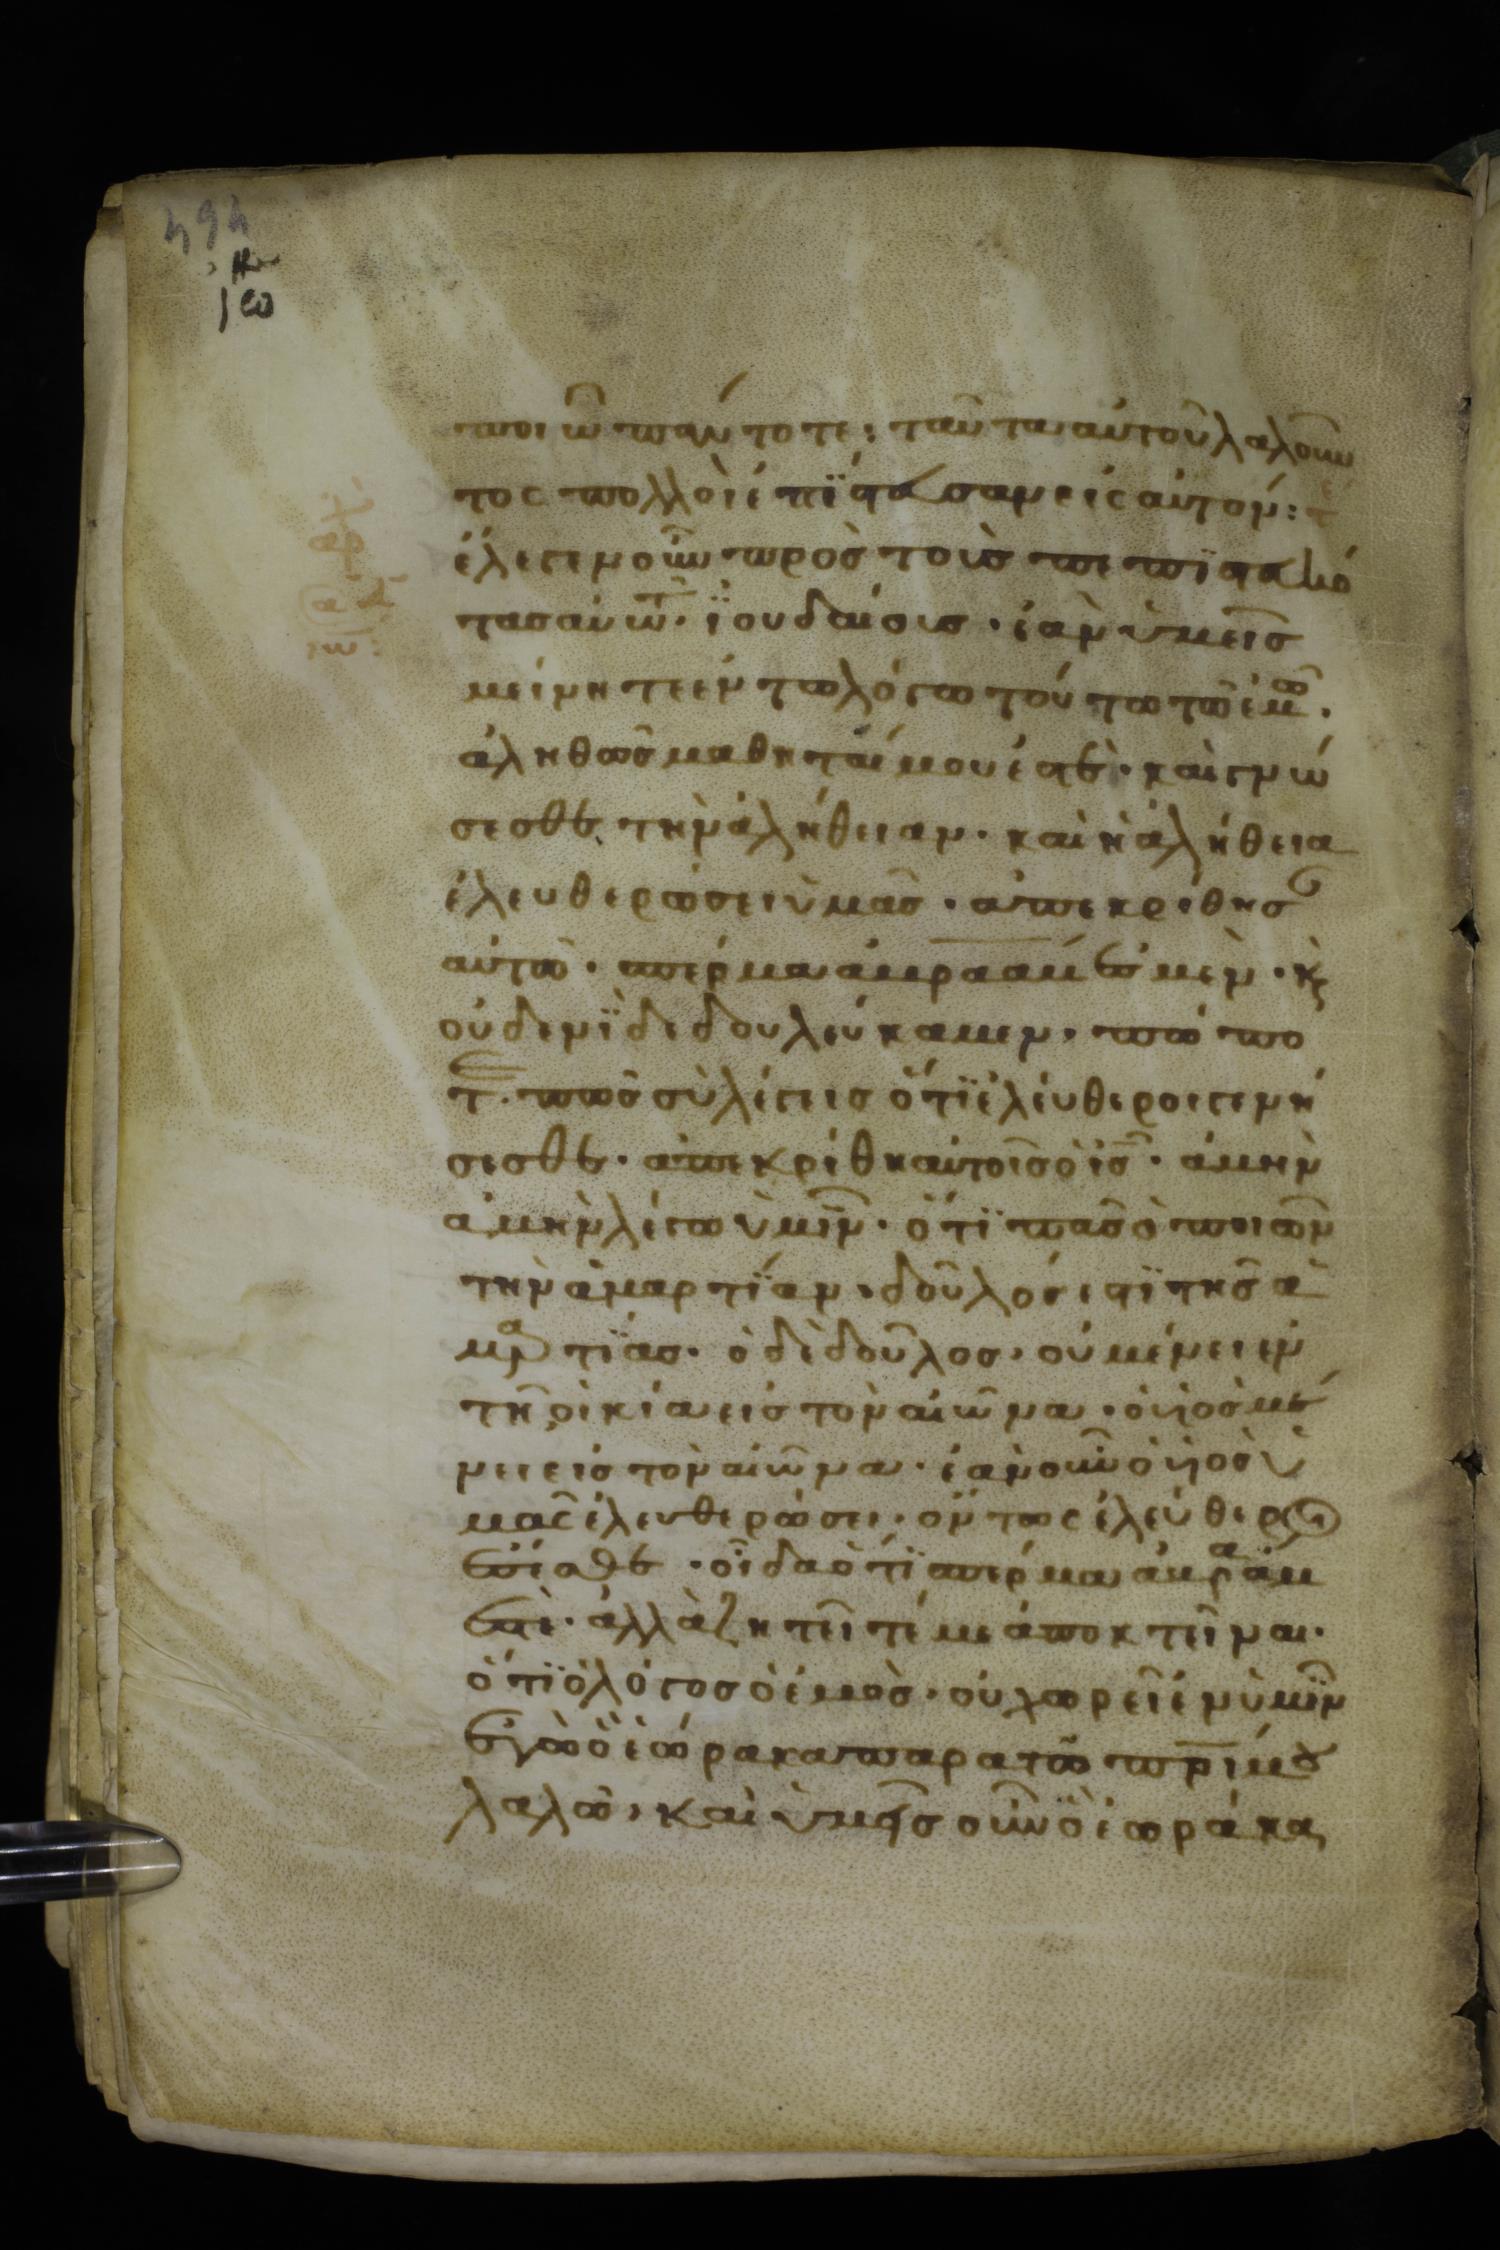 ποιῶ πάντοτε: ταῦτα αὐτοῦ λαλοῦν
τος πολλοὶ ἐπίστευσαν εἰς αὐτόν:
ἔλεγεν οὖν πρὸς τοὺς πεπιστευκό
τας αὐτῶ· ἰουδαίους· ἐὰν ὑμεῖς
μείνητε ἐν τῶ λόγω τούτω τῶ ἐμῶ·
ἀληθῶς μαθηταί μου ἐστὲ· καὶ γνώ
σεσθε τὴν ἀλήθειαν· καὶ ἡ ἀλήθεια
ἐλευθερώσει ὑμᾶς· ἀπεκρίθησ
αὐτῶ· σπέρμα ἀβραάμ ἐσμεν· κ
οὐδενὶ δεδουλεύκαμεν· πώπο
τε· πῶς σὺ λέγεις ὅτι ἐλεύθεροι γενή
σεσθε· ἀπεκρίθη αὐτοῖς ὁ ἰς· ἀμὴν
ἀμὴν λέγω ὑμῖν· ὅτι πᾶς ὁ ποιῶν
τὴν ἁμαρτίαν· δοῦλός ἐστι τῆς ἁ
μαρτίας· ὁ δὲ δοῦλος· οὐ μένει ἐν
τῆ οἰκία εἰς τὸν αἰῶνα· ὁ υἱὸς μέ
νει εἰς τὸν αἰῶνα· ἐὰν οὖν ὁ υἱὸς ὑ
μᾶς ἐλευθερώσει· ὄντως ἐλεύθεροι
ἔσεσθε· οἶδα ὅτι σπέρμα ἀβραάμ
ἐστὲ· ἀλλὰ ζητεῖτέ με ἀποκτεῖναι·
ὅτι ὁ λόγος ὁ ἐμὸς· οὐ χωρεῖ ἐν ὑμῖν
ἐγὼ ὃ ἑώρακα παρὰ τῶ πρί μου
λαλῶ· καὶ ὑμεῖς οὖν ὃ ἑωράκα